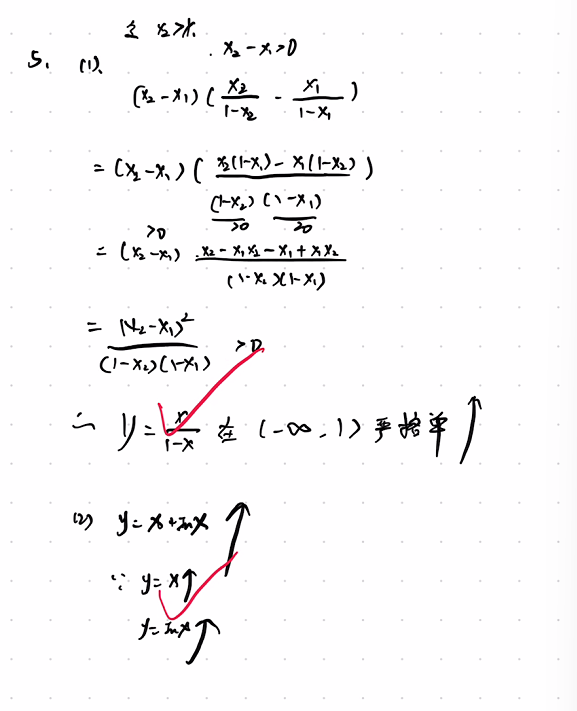 令 x₂>x₁
5. (1). x₂-x₁>0
(x₂-x₁)(x₂/(1-x₂) - x₁/(1-x₁))
= (x₂-x₁)((x₂(1-x₁)-x₁(1-x₂))/((1-x₂)(1-x₁)))
>0 >0 >0
= (x₂-x₁) (x₂-x₁x₂-x₁+x₁x₂)/((1-x₂)(1-x₁))
= (x₂-x₁)²/((1-x₂)(1-x₁)) >0
∴ y = x/(1-x) 在 (-∞,1) 严格单↑
(2) y=x+lnx ↑
∵ y=x↑
y=lnx↑